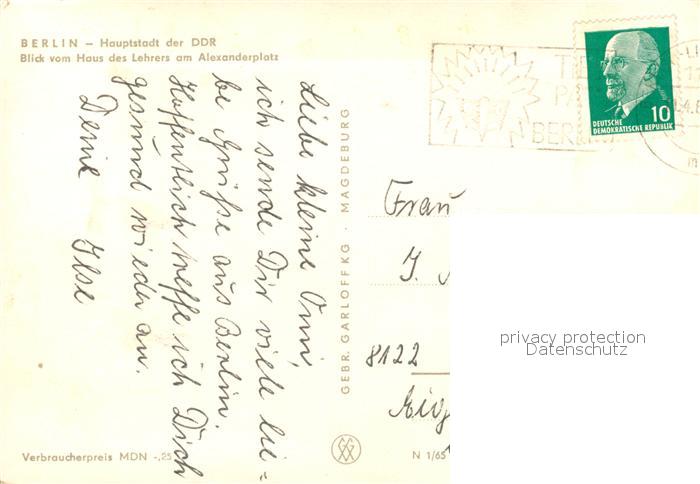 BERLIN – Hauptstadt der DDR
Blick vom Haus des Lehrers am Alexanderplatz
Liebe kleine Omi,
ich sende Dir viele lie-
be Grüße aus Berlin.
Hoffentlich treffe ich Dich
gesund wieder an.
Deine Ilse
GEBR. GARLOFF KG · MAGDEBURG
TIE
PA
BERL
10
DEUTSCHE
DEMOKRATISCHE REPUBLIK
Frau
J.
8122
privacy protection
Datenschutz
Verbraucherpreis MDN -,25
N 1/65